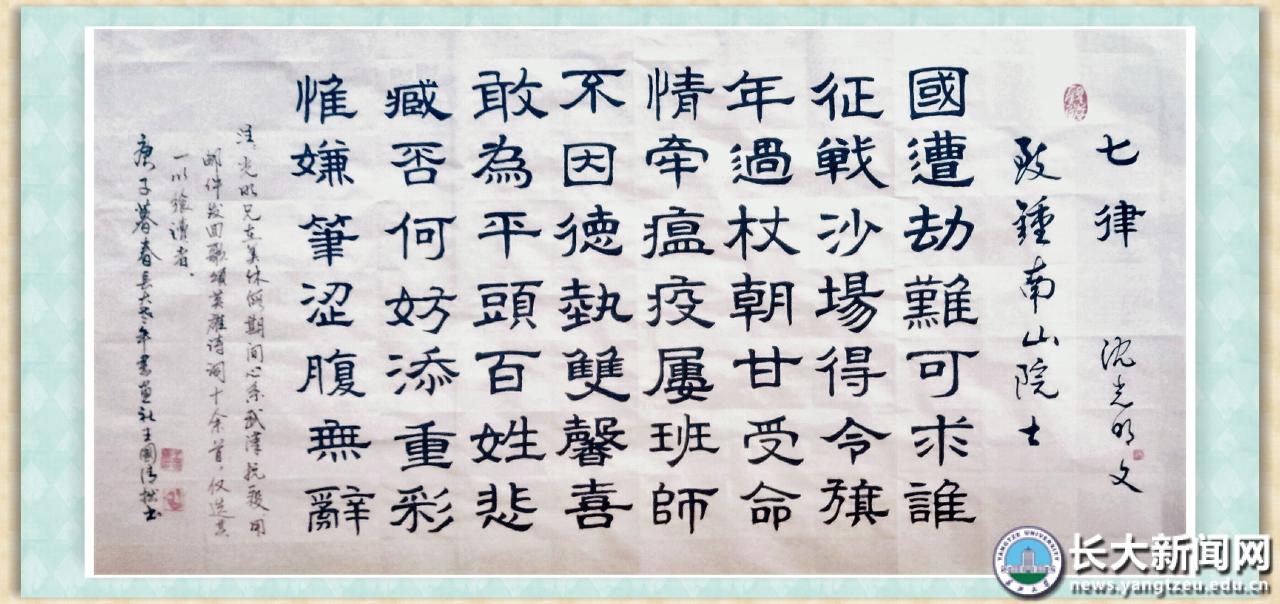 七律 沈光明文
致鍾南山院士
國遭劫難可求誰
征戰沙場得令旗
年過杖朝甘受命
情牽瘟疫屢班師
不因德藝雙馨喜
敢為平頭百姓悲
臧否何妨添重彩
惟嫌筆澀腹無辭
注:光明兄在美休假期间心系武汉抗疫用
邮件发回歌颂英雄诗词十余首,仅选其
一以飨读者。
庚子暮春长大老年书画社王國清撰书
长大新闻网
news.yangtzeu.edu.cn
YANGTZE UNIVERSITY
长江大学